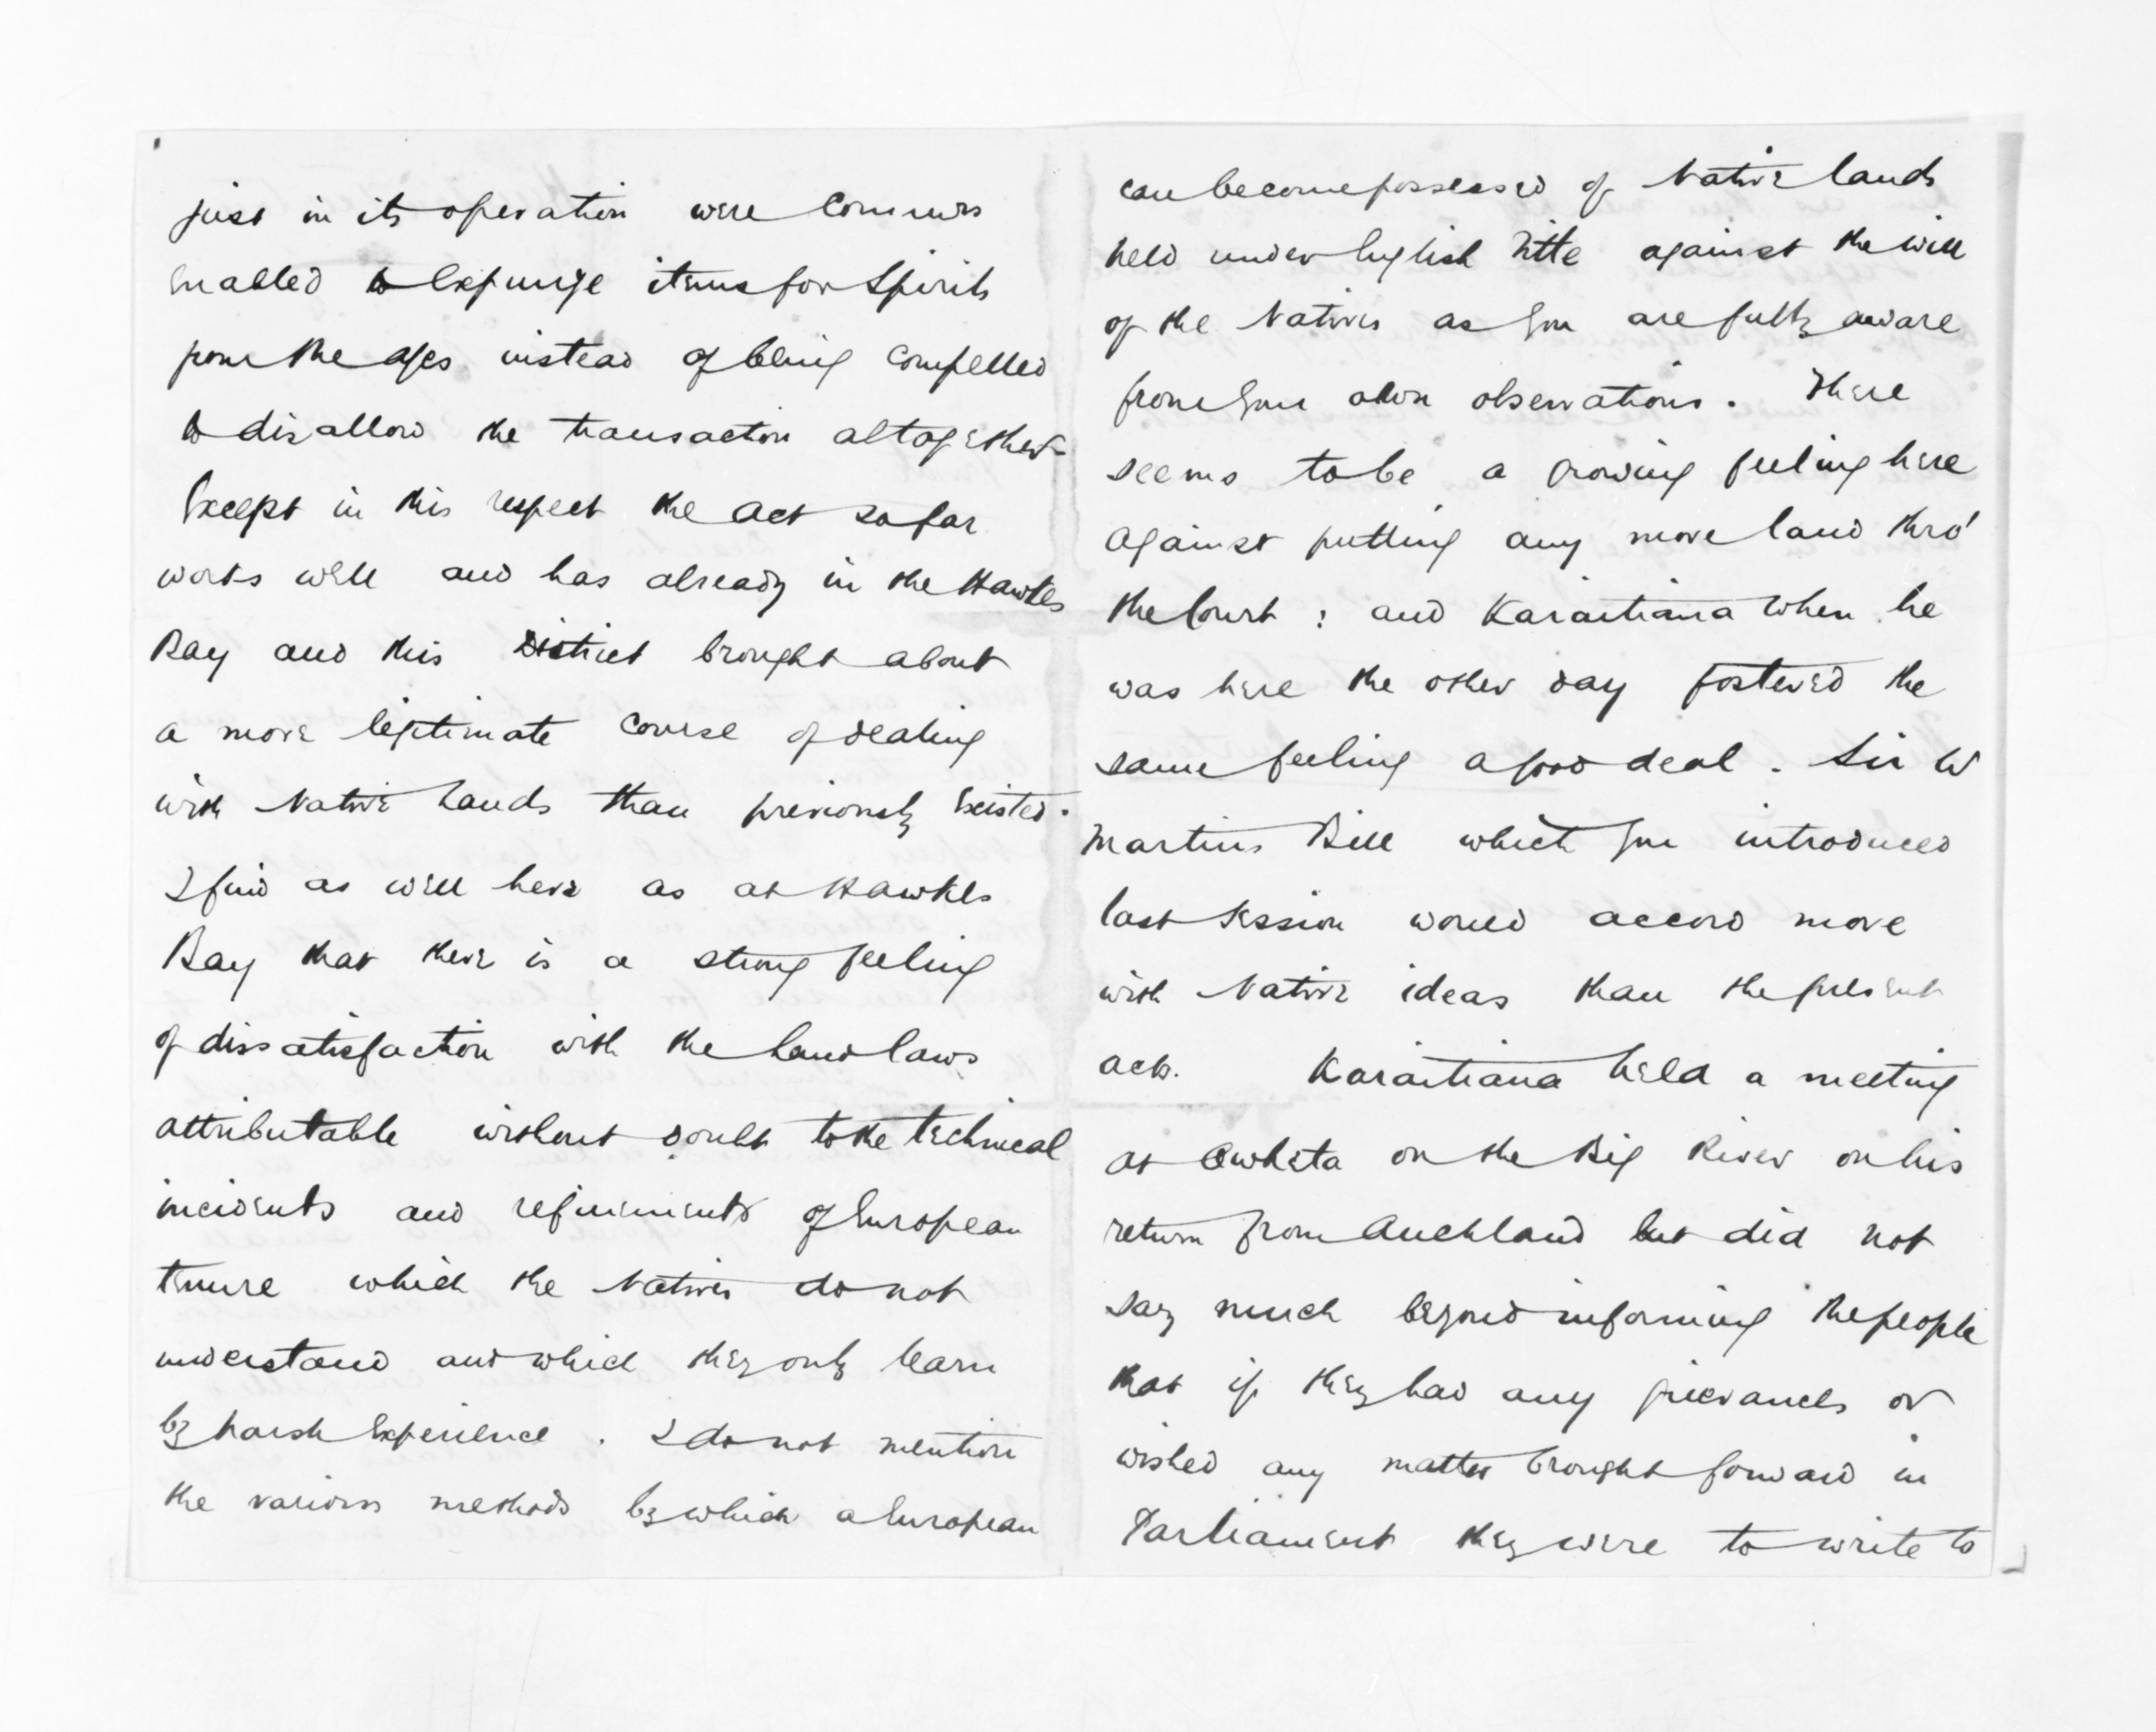 just in its operation were Comrs
enabled to expunge items for Spirits
from the a/cs instead of being compelled
to disallow the transaction altogether
Except in this respect the act so far
works well and has already in the Hawkes
Bay and this District brought about
a more legitimate course of dealing
with Native Lands than previously existed.
I find as well here as at Hawkes
Bay that there is a strong feeling
of dissatisfaction with the Land laws
attributable without doubt to the technical
incidents and refinements of European
tenure which the Natives do not
understand and which they only learn
by harsh experience. I do not mention
the various methods by which a European
can become possessed of Native lands
held under English title against the will
of the Natives as you are fully aware
from your own observations. There
seems to be a growing feeling here
against putting any more land thro'
the Court : and Karaitiana when he
was here the other day fostered the
same feeling a good deal. Sir W
Martins Bill which you introduced
last session would accord more
with Native ideas than the present
acts. Karaitiana held a meeting
at Owheta on the Big River on his
return from Auckland but did not
say much beyond informing the people
that if they had any grievances or
wished any matter brought forward in
Parliament they were to write to